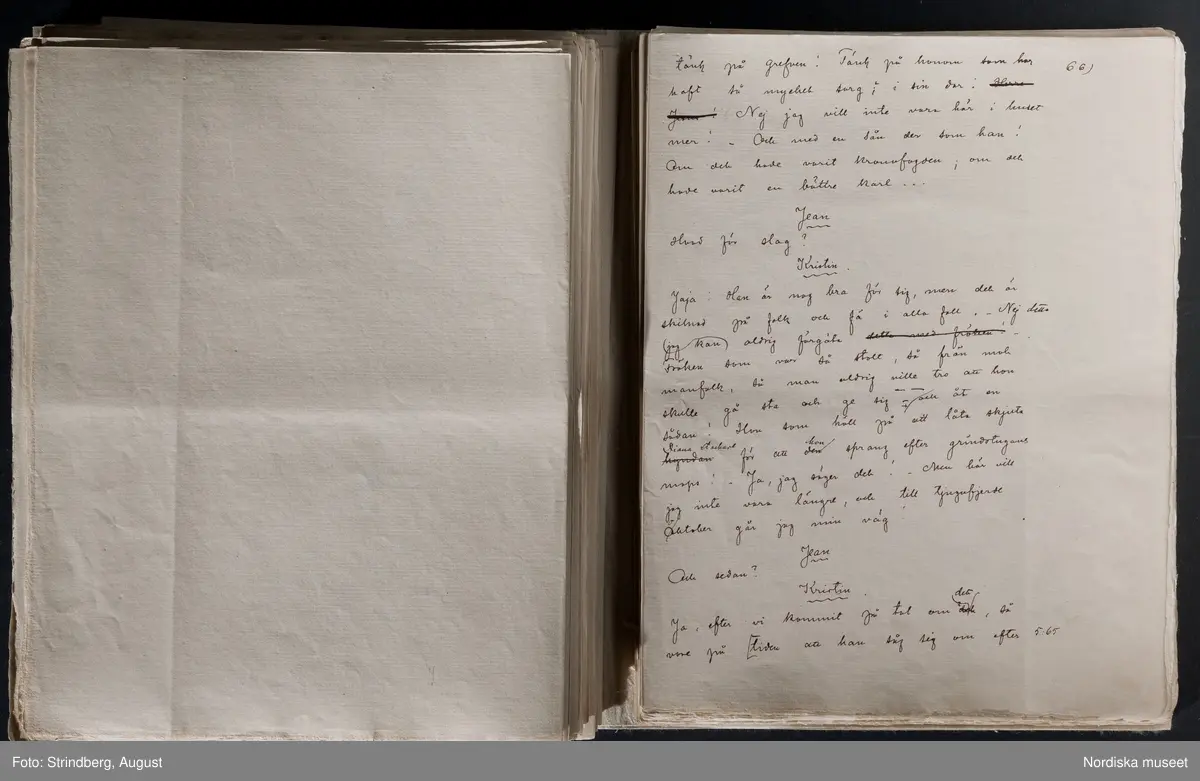 tänk på grefven! Tänk på honom som har
66)
haft så mycket sorg i sin dar! Herre
Jesus! Nej jag vill inte vara här i huset
mer! – Och med en sån der som han!
Om det hade varit kronofogden; om det
hade varit en bättre karl...
Jean
Hvad för slag?
Kristin.
Jaja! Han är nog bra för sig, men det är
skilnad på folk och fä i alla fall. – Nej detta
(jag kan) aldrig förgäta detta med fröken! –
Fröken som var så stolt, så från mot
manfolk, så man aldrig ville tro att hon
skulle gå sta och ge sig – och åt en
sådan! Hon som höll på att låta skjuta
Diana stackare hon
hyndan för att den sprang efter grindstugans
mops! – Ja, jag säger det! – Men här vill
jag inte vara längre, och till tjugufjerde
Oktober går jag min väg!
Jean
Och sedan?
Kristin.
det
Ja, efter vi kommit på tal om det, så
vore på [tiden att han såg sig om efter 5.65
Foto: Strindberg, August
Nordiska museet